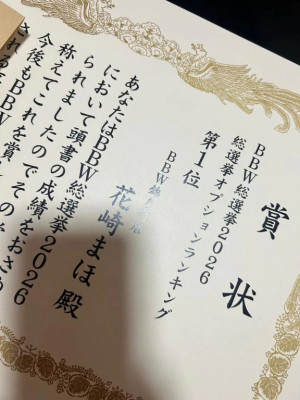 賞状
BBW総選挙2026
総選挙オプションランキング
第1位
BBW
花崎まほ殿
あなたはBBW総選挙2026
において頭書の成績をおさ
られましたのでその
称えてこれを賞
今後もBBW
される